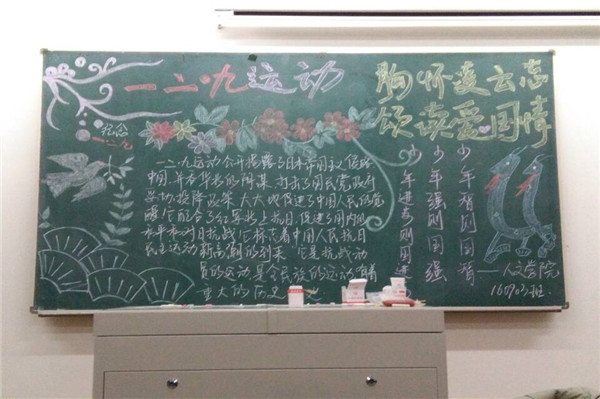 一二·九运动
胸怀凌云志
颂读爱国情
纪念
一二·九
一二·九运动公开揭露了日本帝国主义侵略
中国,并吞华北的阴谋,打击了国民党政府
妥协投降政策,大大地促进了中国人民的觉
醒。它配合了红军北上抗日,促进了国内和
平和对日抗战。它标志着中国人民抗日
民主运动新高潮的到来。它是抗战动
员的运动,是全民族的运动,有着
重大的历史
少年强则国强
少年则国
少年进步则国进
——人文学院
160703班.